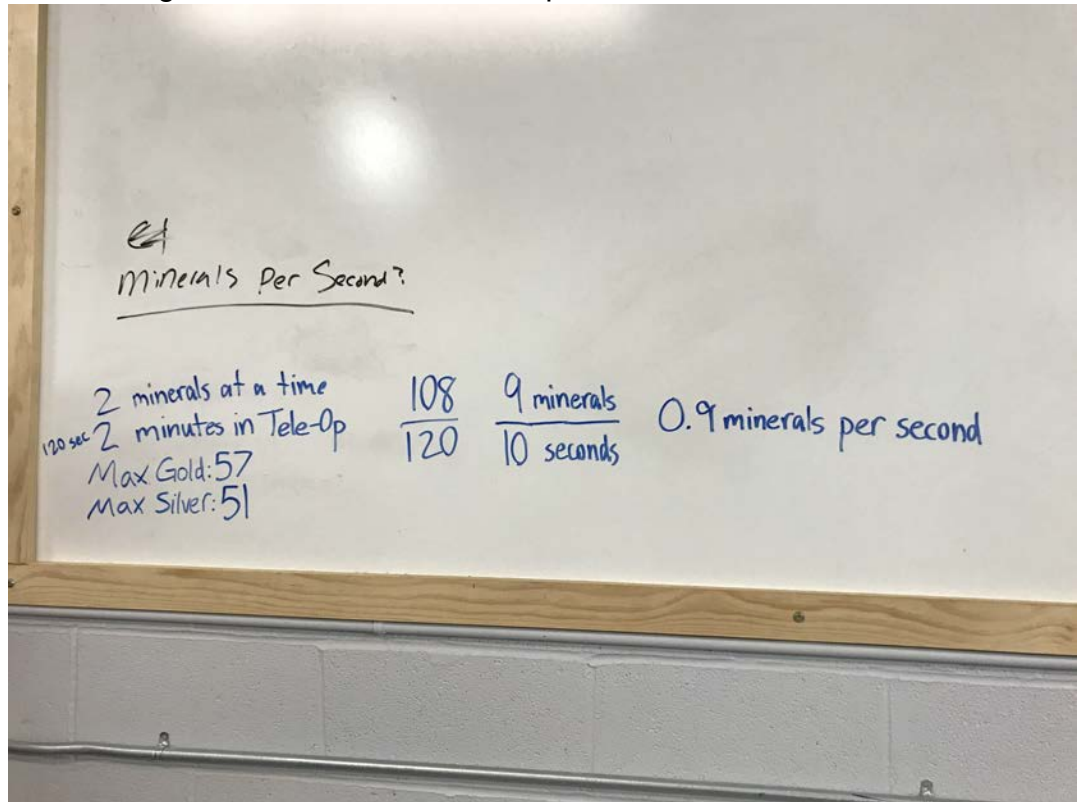 Minerals Per Second?
2 minerals at a time
120 sec 2 minutes in Tele-Op
Max Gold: 57
Max Silver: 51
108
120
9 minerals
10 seconds
0.9 minerals per second